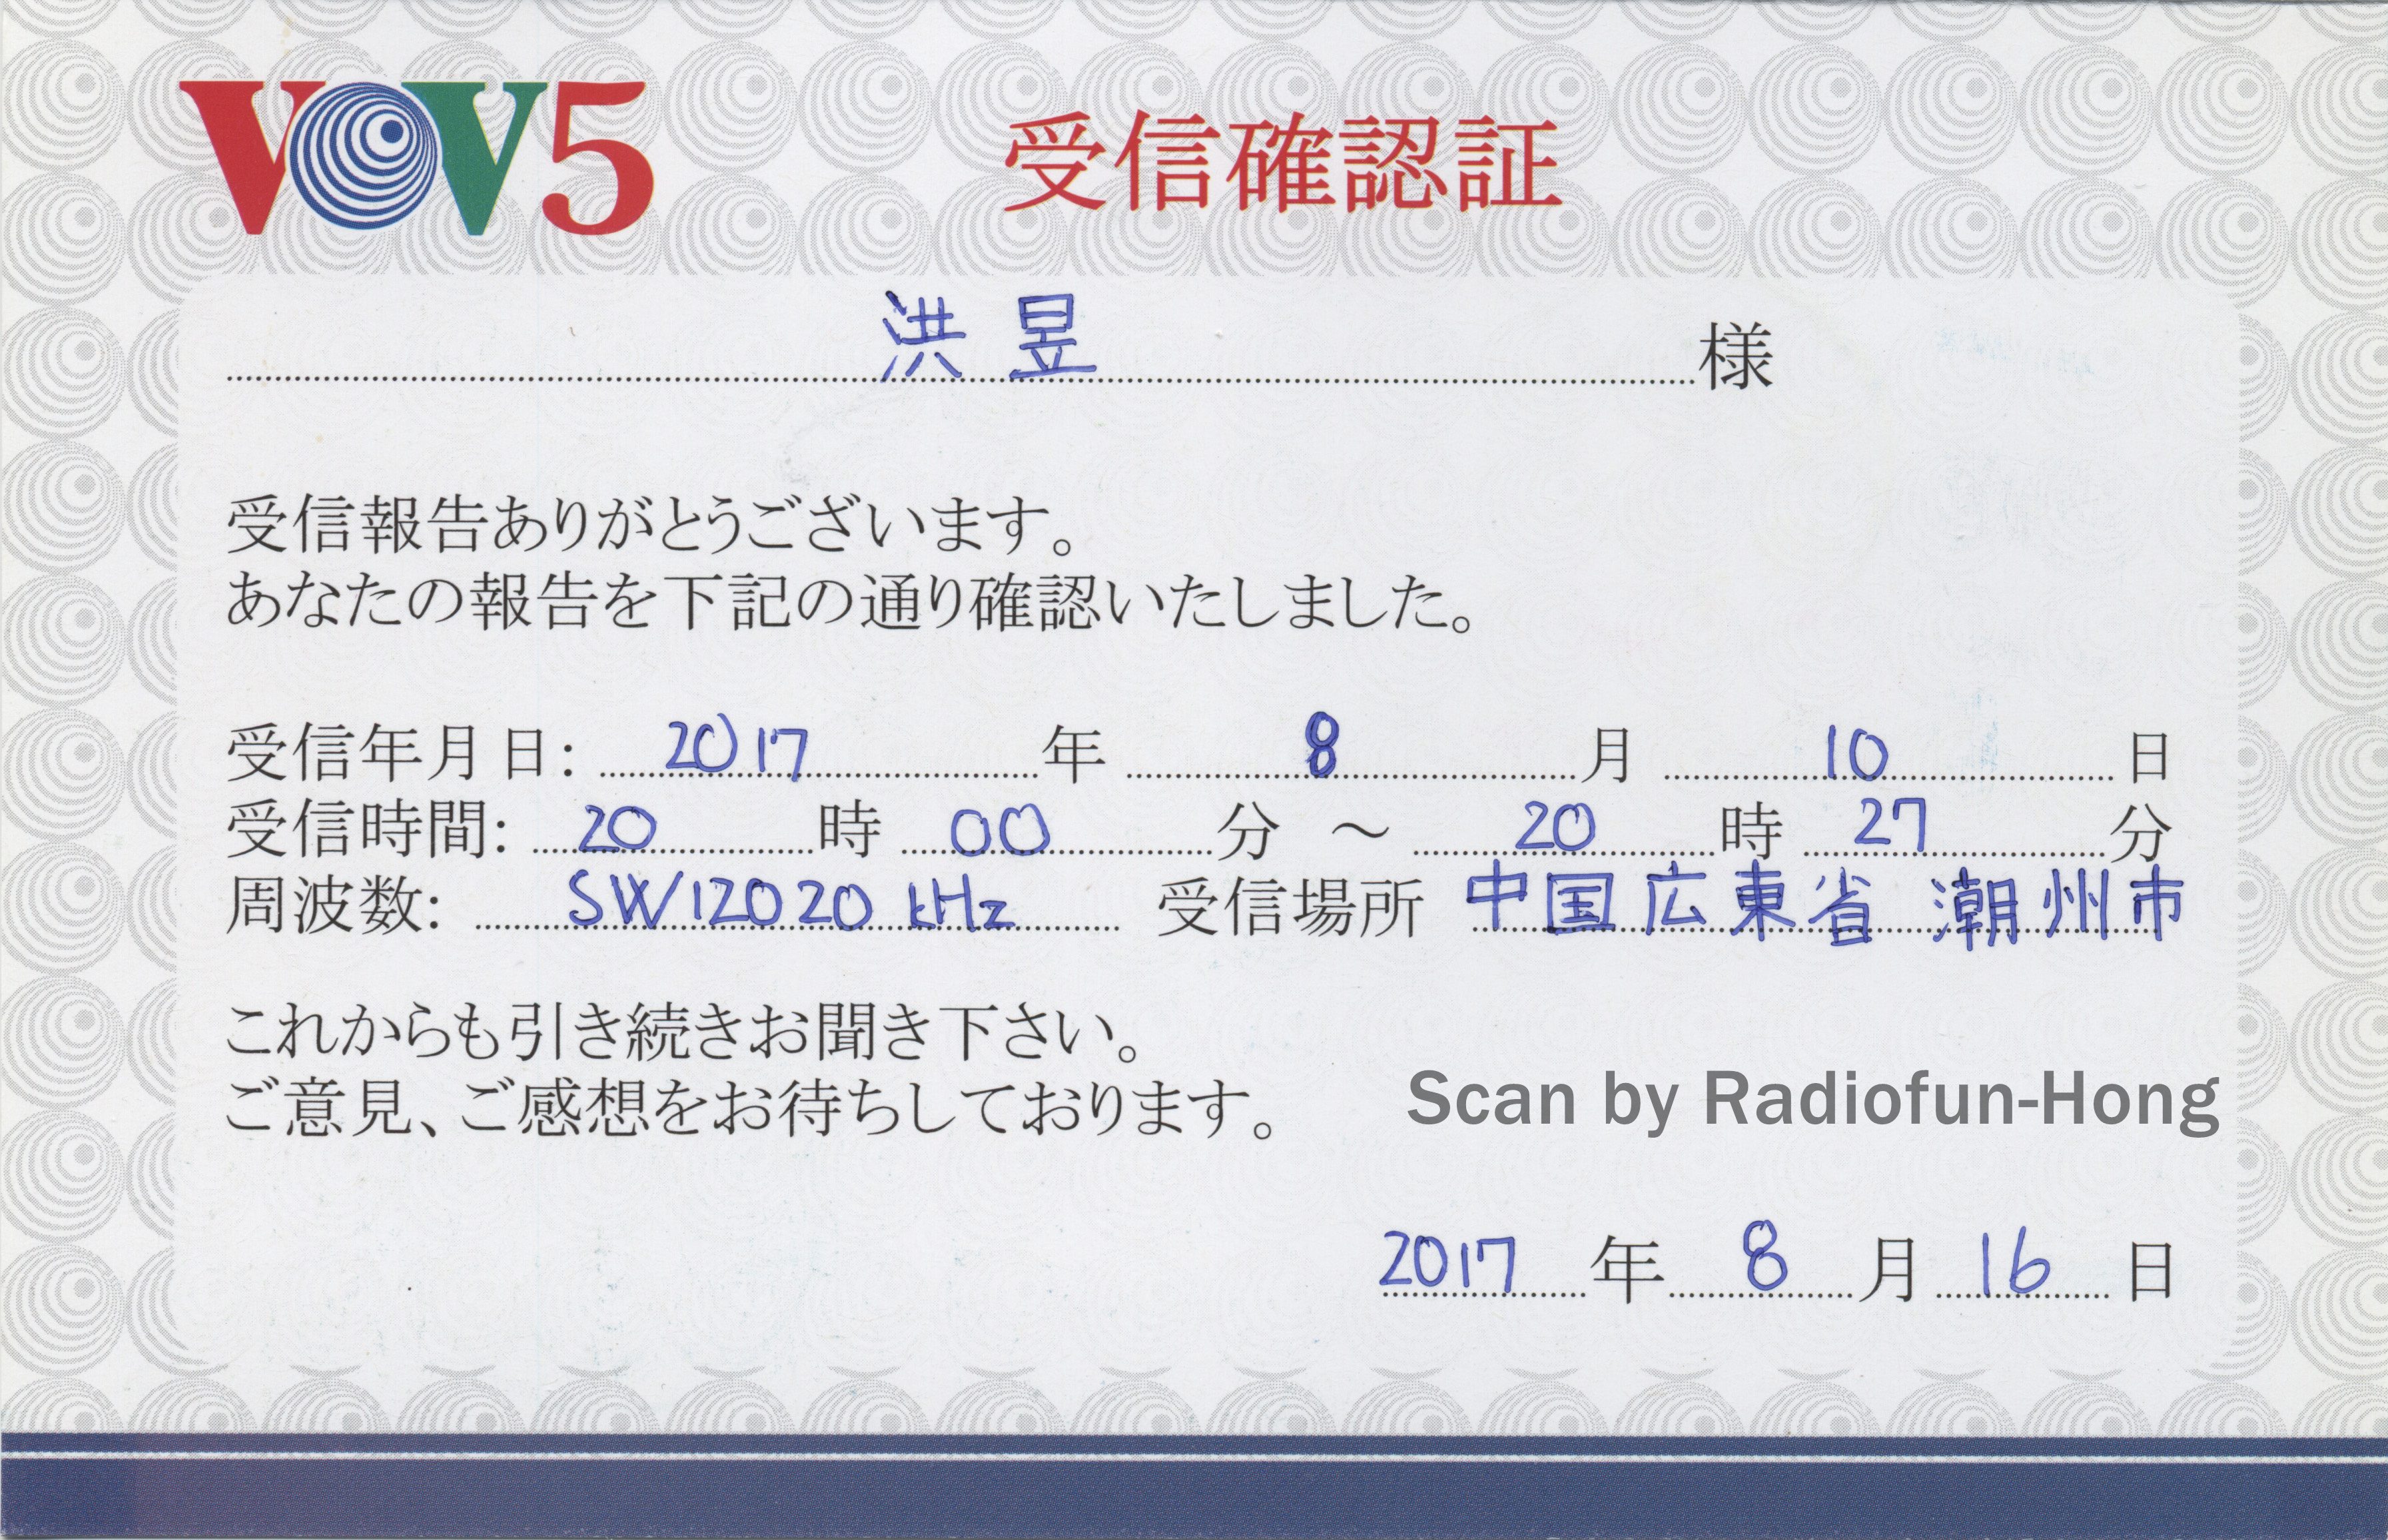 VOV5
受信確認証
洪 昱 様
受信報告ありがとうございます。
あなたの報告を下記の通り確認いたしました。
受信年月日: 2017 年 8 月 10 日
受信時間: 20 時 00 分 ～ 20 時 27 分
周波数: SW12020 kHz 受信場所 中国広東省 潮州市
これからも引き続きお聞き下さい。
ご意見、ご感想をお待ちしております。
Scan by Radiofun-Hong
2017 年 8 月 16 日